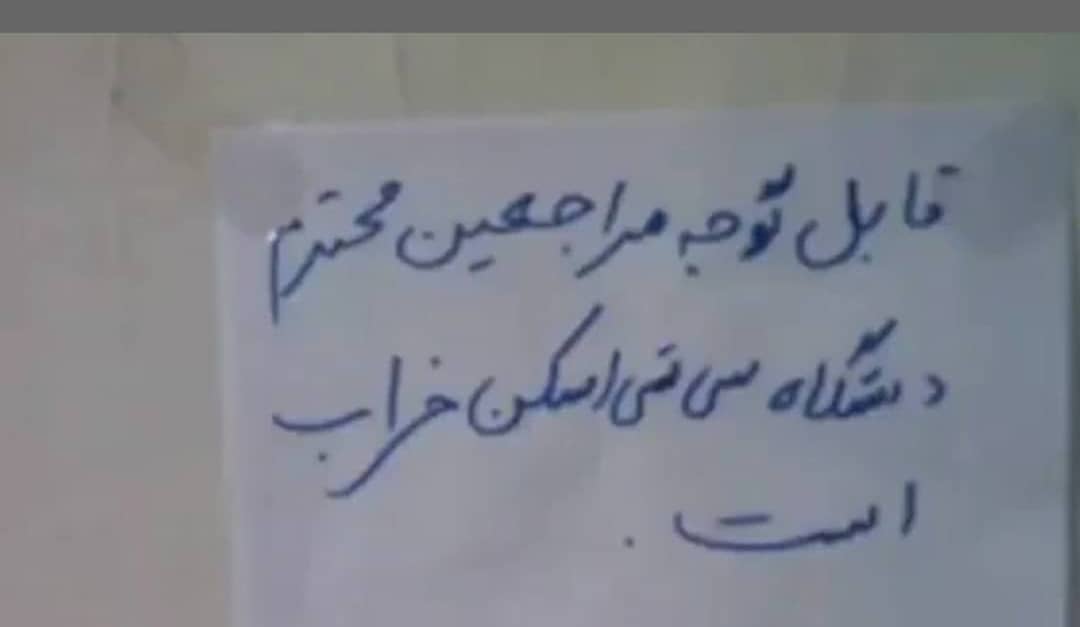 قابل توجه مراجعین محترم
دستگاه سی تی اسکن خراب
است .